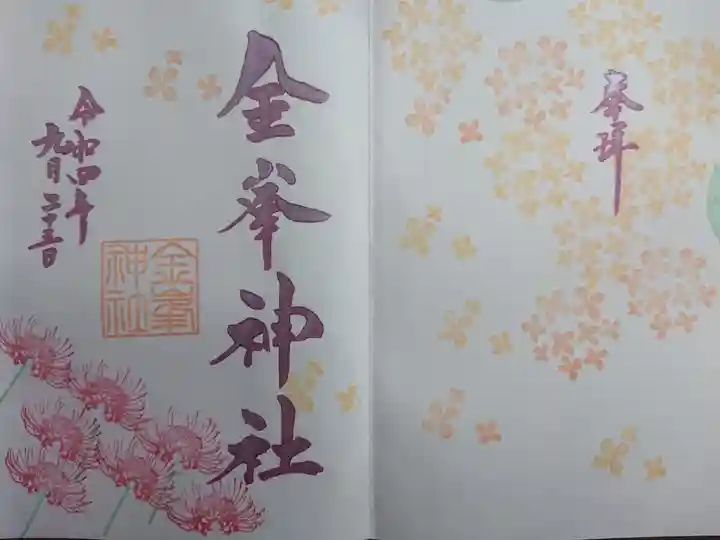 奉拝
金峯神社
令和四年
九月二十五日
金峯
神社